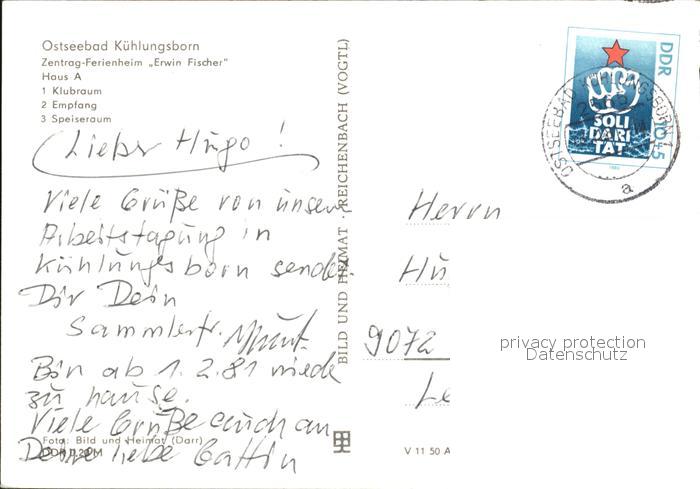 Ostseebad Kühlungsborn
Zentrag-Ferienheim „Erwin Fischer"
Haus A
1 Klubraum
2 Empfang
3 Speiseraum
Lieber Hugo!
Viele Grüße von unserer
Arbeitstagung in
Kühlungsborn sendet
Dir Dein
Sammlerfr.
Bin ab 1.2.81 wieder
zu hause.
Viele Grüße auch an
Deine liebe Gattin
Foto: Bild und Heimat (Darr)
BILD UND HEIMAT · REICHENBACH (VOGTL)
V 11 50 A
DDR
10+5
SOLI
DARI
TÄT
1980
OSTSEEBAD KÜHLUNGSBORN 1
a
Herrn
Hu
9072
Le
privacy protection
Datenschutz